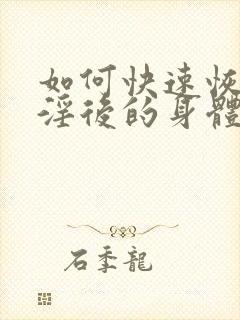 如何快速恢
淫後的身體
石季龍